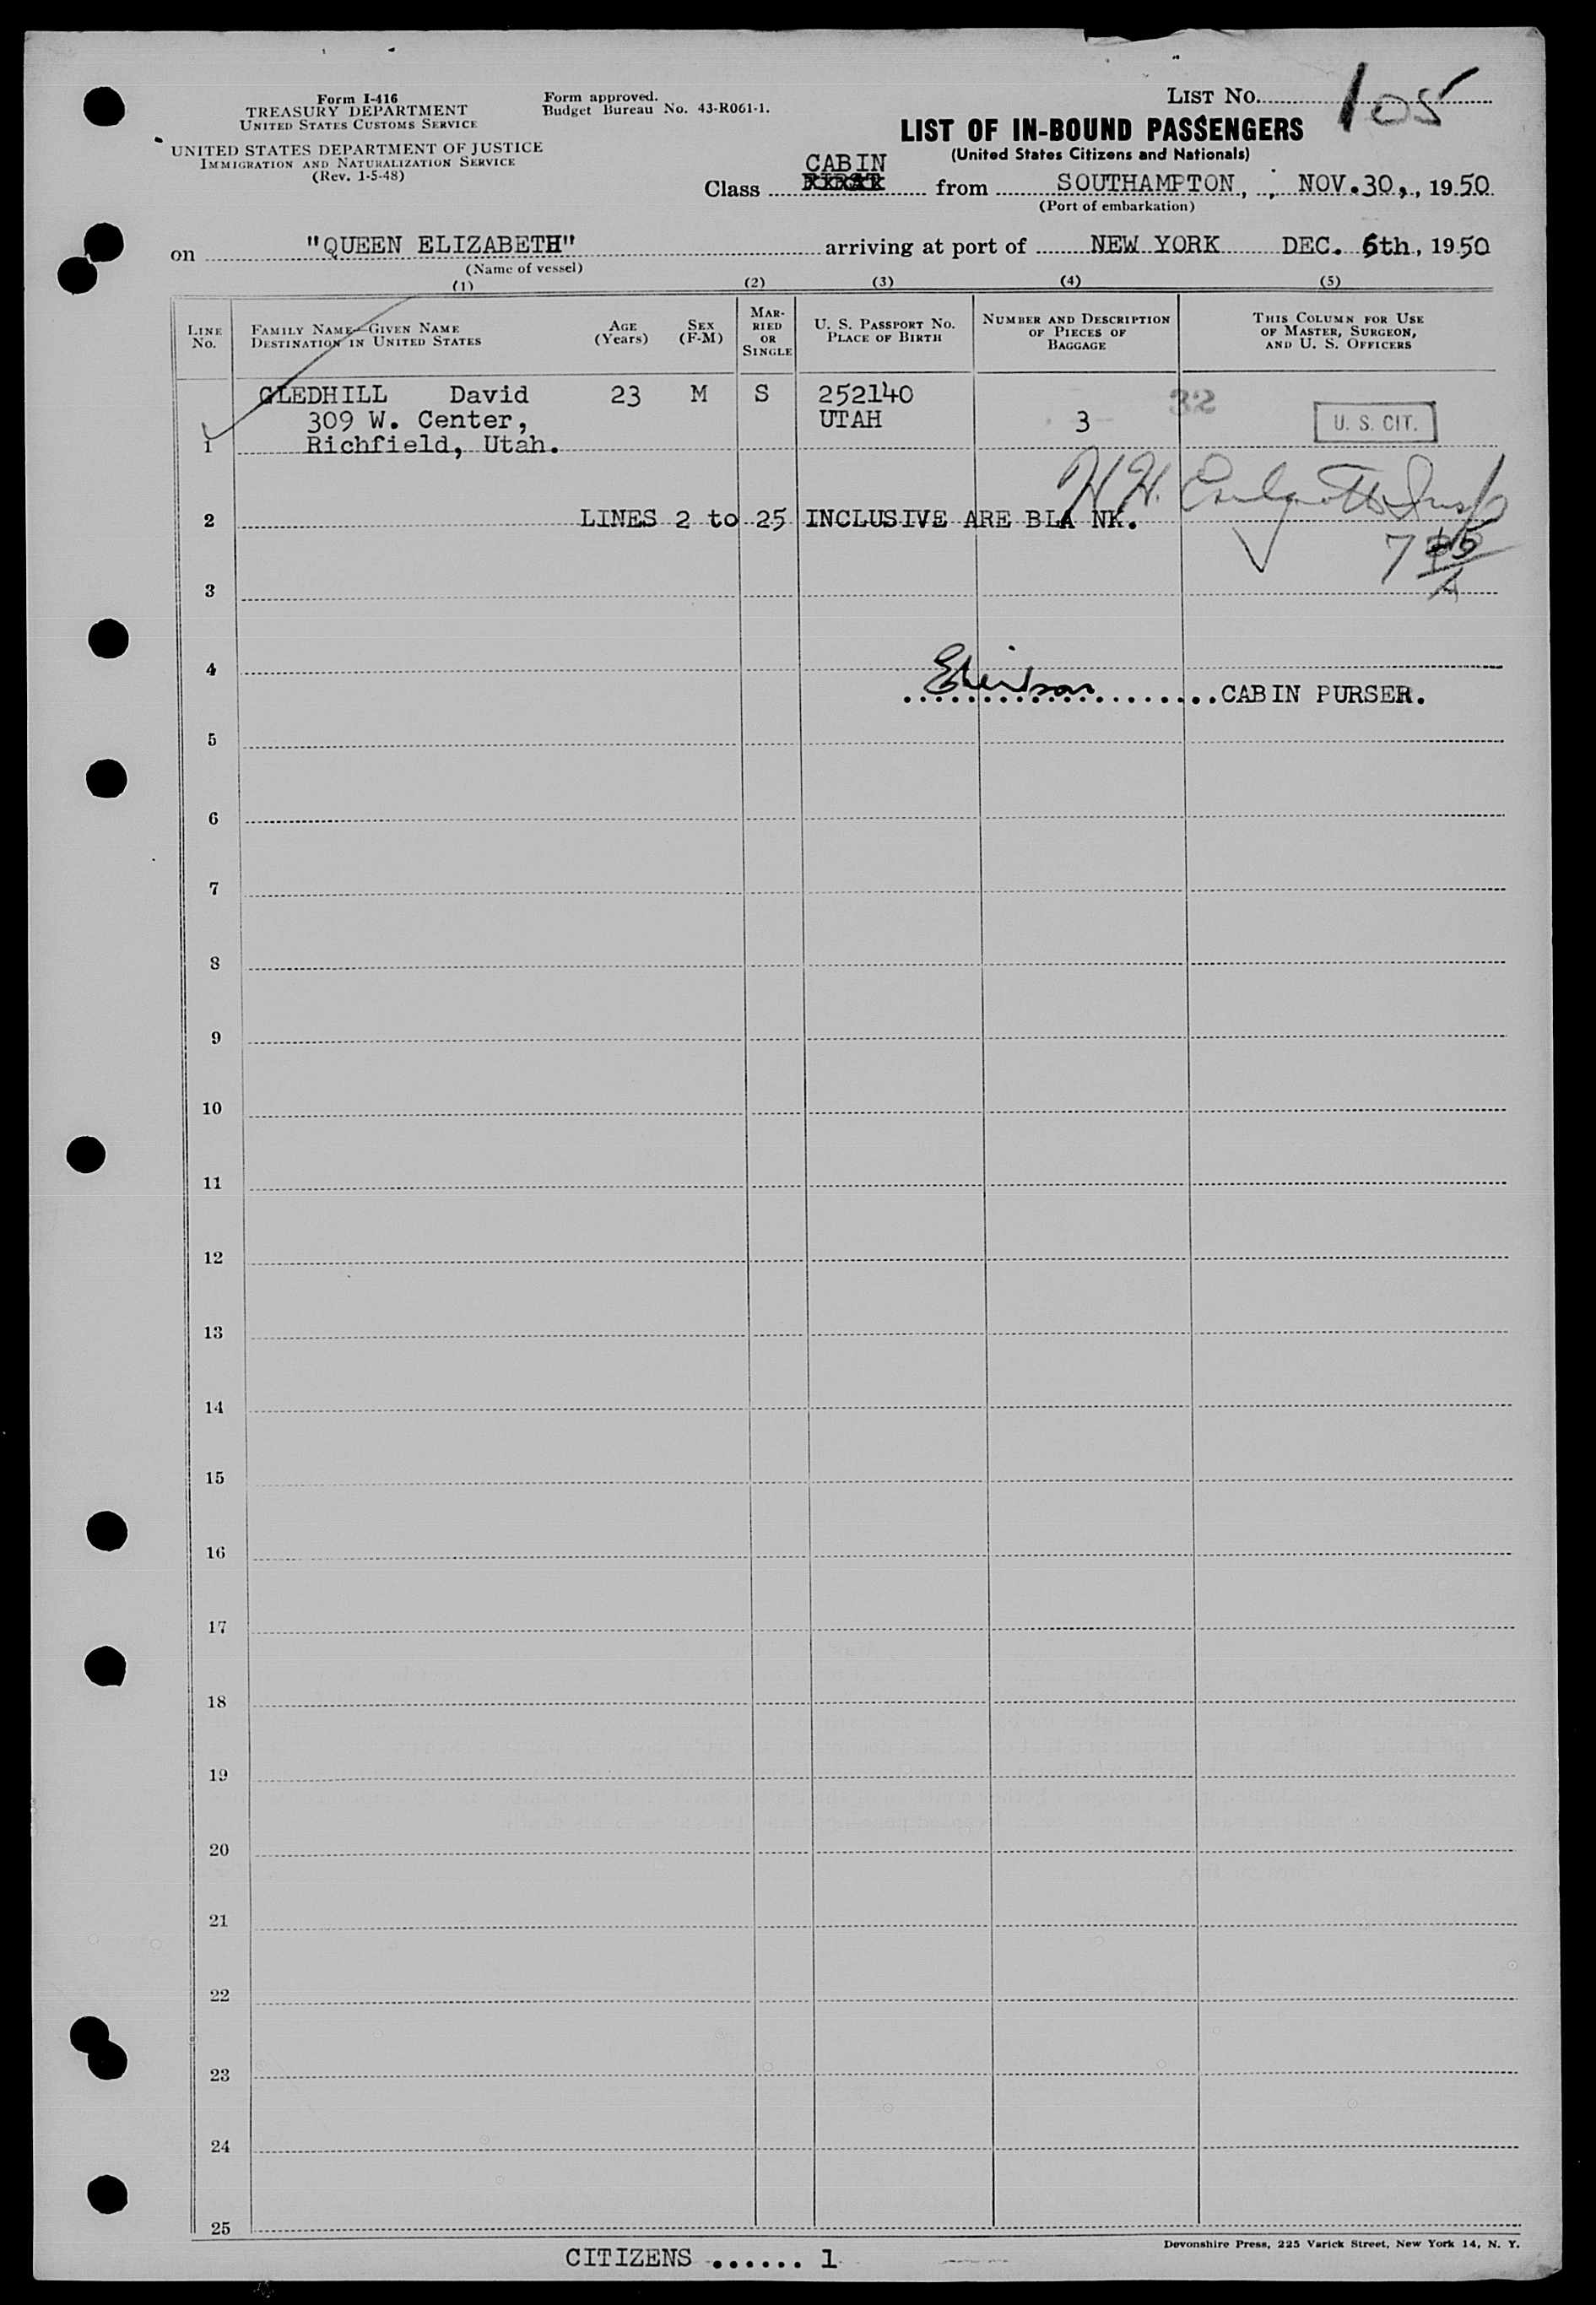 Form I-416
TREASURY DEPARTMENT
UNITED STATES CUSTOMS SERVICE
UNITED STATES DEPARTMENT OF JUSTICE
IMMIGRATION AND NATURALIZATION SERVICE
(Rev. 1-5-48)
Form approved.
Budget Bureau No. 43-R061-1.
LIST NO. 105
LIST OF IN-BOUND PASSENGERS
(United States Citizens and Nationals)
CABIN
Class FIRST from SOUTHAMPTON, NOV.30,, 1950
(Port of embarkation)
on "QUEEN ELIZABETH" arriving at port of NEW YORK DEC. 6th, 1950
(Name of vessel)
(1) (2) (3) (4) (5)
LINE NO. FAMILY NAME—GIVEN NAME DESTINATION IN UNITED STATES AGE (Years) SEX (F-M) MARRIED OR SINGLE U. S. PASSPORT NO. PLACE OF BIRTH NUMBER AND DESCRIPTION OF PIECES OF BAGGAGE THIS COLUMN FOR USE OF MASTER, SURGEON, AND U. S. OFFICERS
GLEDHILL David 23 M S 252140 32
309 W. Center, UTAH 3 U. S. CIT.
1 Richfield, Utah.
H.H. Insp
2 LINES 2 to 25 INCLUSIVE ARE BLA NK.
7
3
4
CABIN PURSER.
5
6
7
8
9
10
11
12
13
14
15
16
17
18
19
20
21
22
23
24
25
Devonshire Press, 225 Varick Street, New York 14, N. Y.
CITIZENS ...... 1